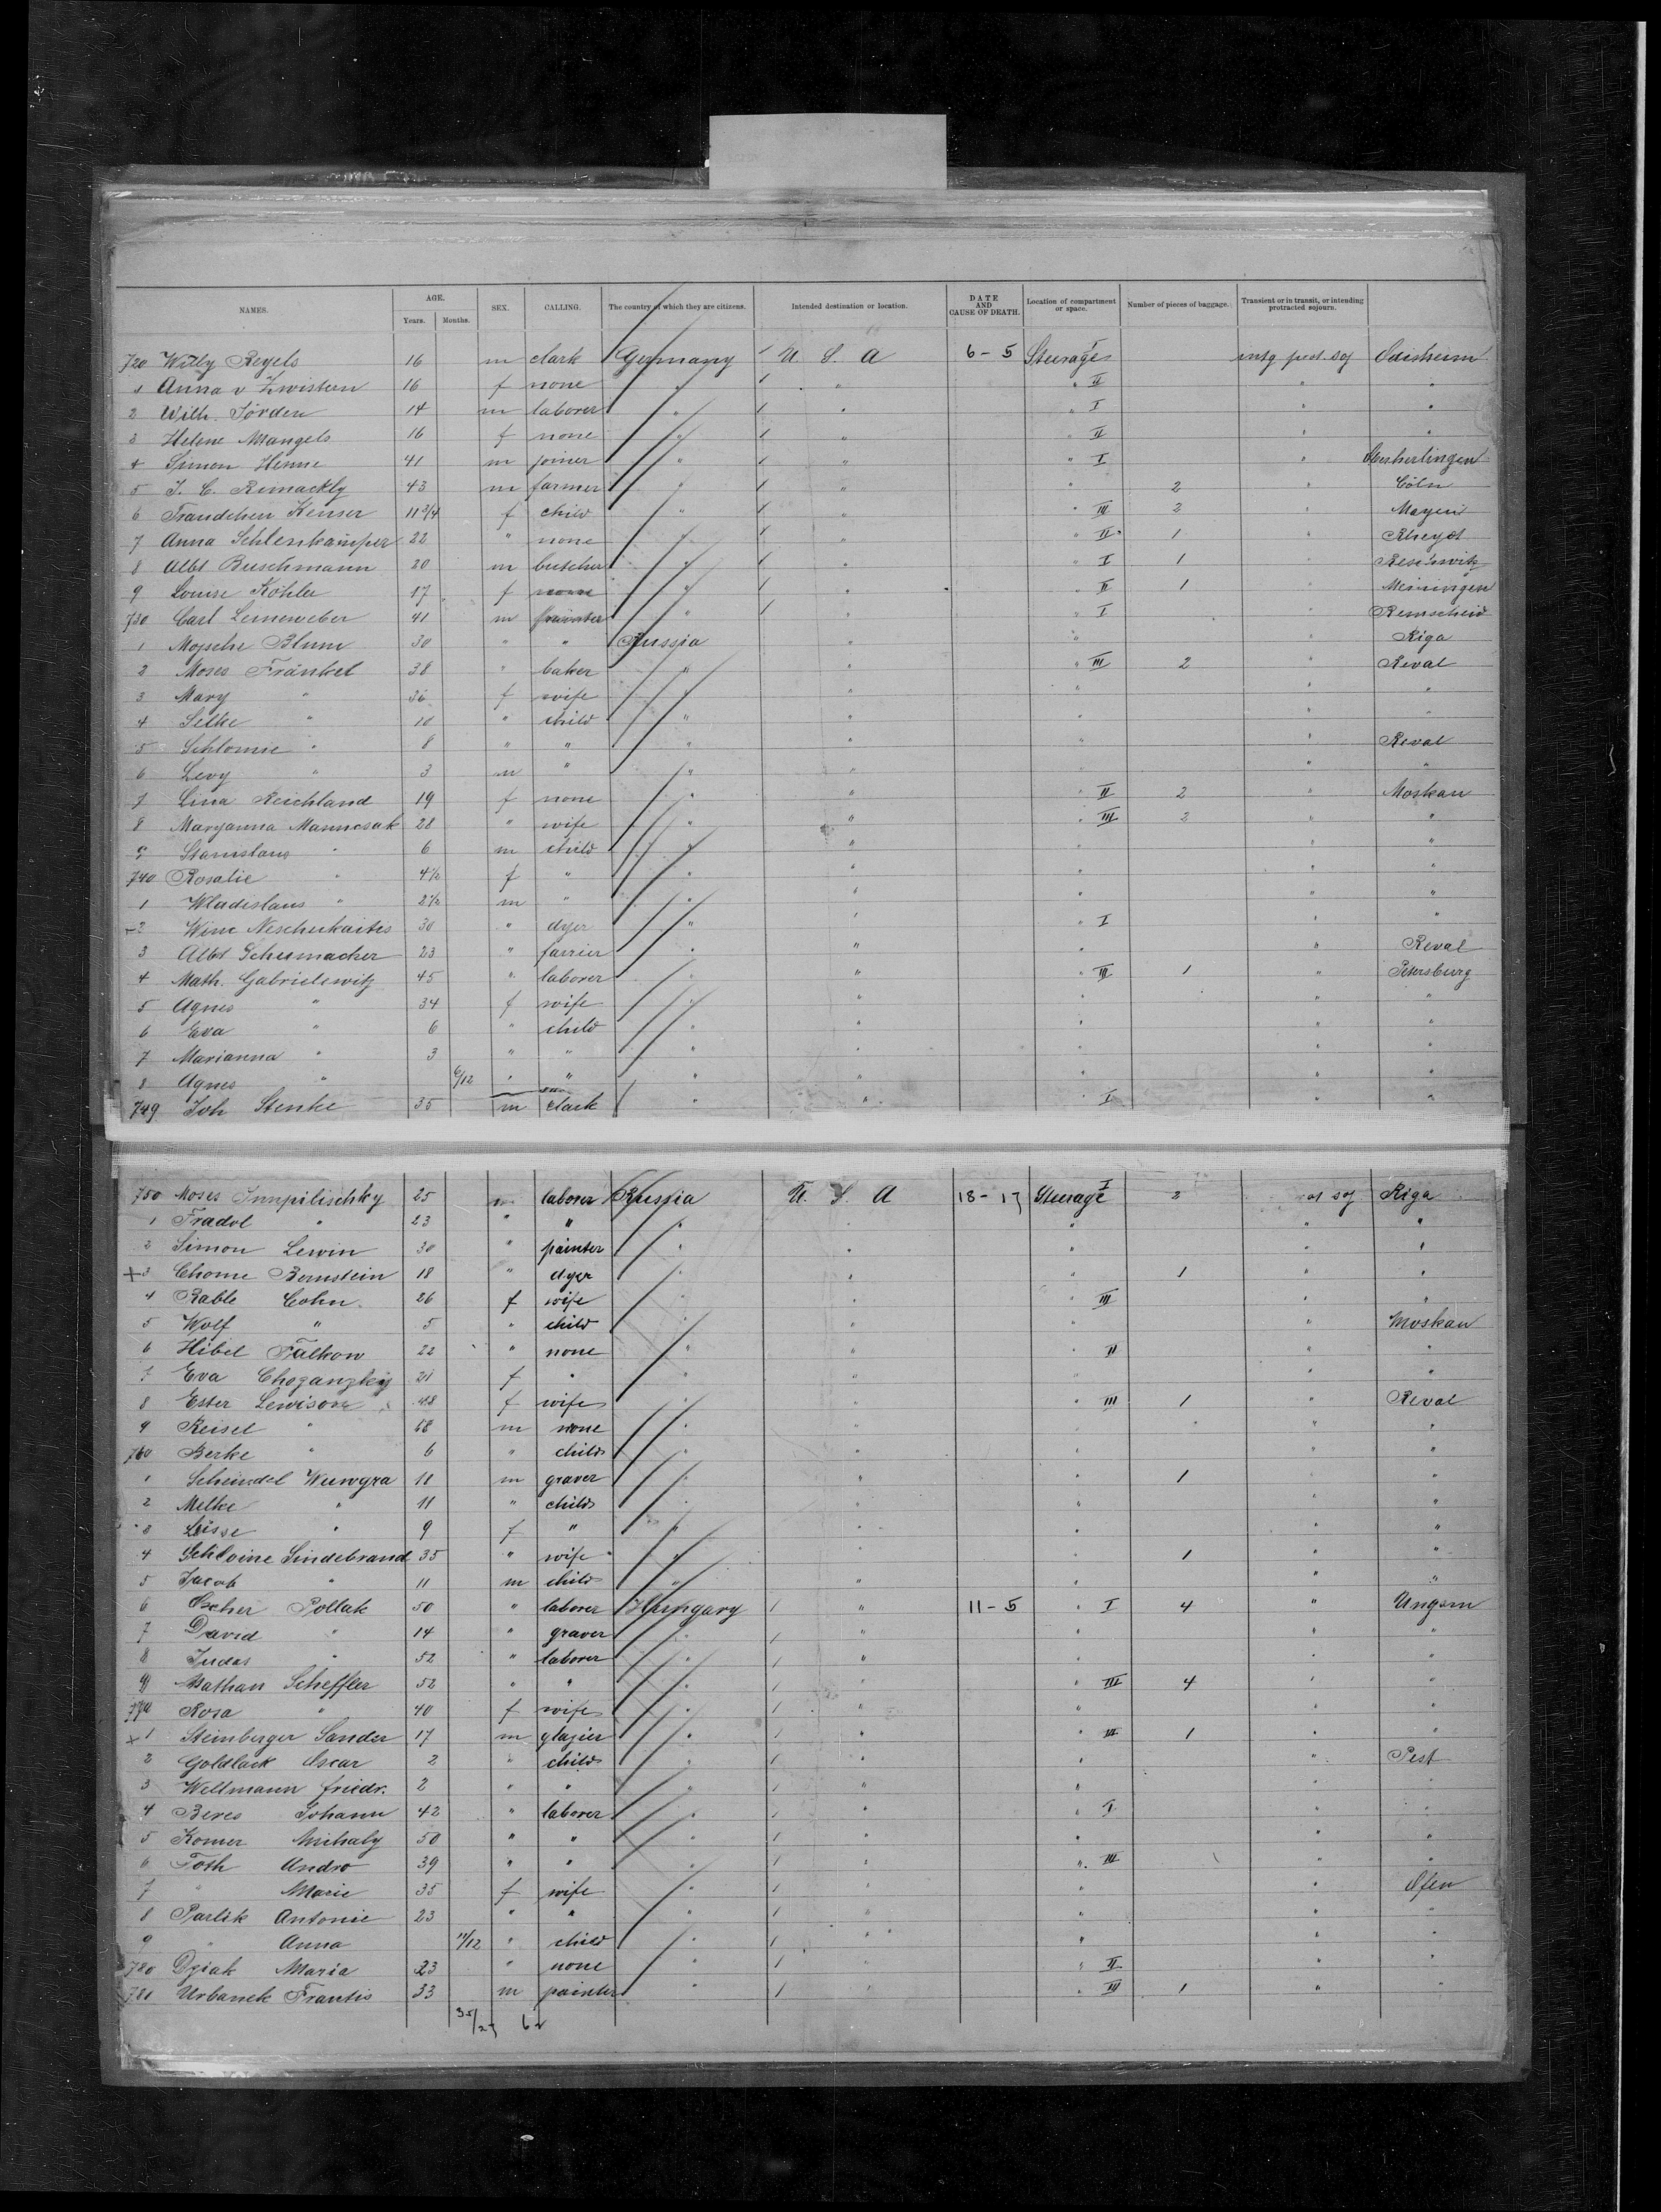 NAMES. AGE. Years. Months. SEX. CALLING. The country of which they are citizens. Intended destination or location. DATE AND CAUSE OF DEATH. Location of compartment or space. Number of pieces of baggage. Transient or in transit, or intending protracted sojourn.
720 Willy Regels 16 m clark Germany 1 U S A 6-5 Steerage I intg prot soj Odisheim
1 Anna v Zwistern 16 f none " 1 " " II " "
2 Wilh. Jörden 14 m laborer " 1 " " I " "
3 Helene Mangels 16 f none " 1 " " II " "
4 Simon Henne 41 m joiner " 1 " " I "
5 J. C. Remackly 43 m farmer " 1 " " 2 " Cöln
6 Traudchen Kenser 11 3/4 f child " 1 " " III 2 " Mayen
7 Anna Schlenkamper 22 " none " 1 " " II 1 " Rheydt
8 Albt Buschmann 20 m butcher " 1 " " I 1 "
9 Louise Köhler 17 f none " 1 " " II 1 " Meiningen
730 Carl Leineweber 41 m painter " 1 " " I " Remscheid
1 Mojsche Blum 30 " " Russia " " " Riga
2 Moses Fränkel 38 " baker " " " III 2 " Reval
3 Mary " 36 f wife " " " " "
4 Silke " 10 " child " " " " "
5 Schlomie " 8 " " " " " " Reval
6 Levy " 3 m " " " " " "
7 Lina Reichland 19 f none " " " II 2 " Moskau
8 Maryanna Mannesak 28 " wife " " " III 2 " "
9 Stanislaus " 6 m child " " " " "
740 Rosalie " 4 1/2 f " " " " " "
1 Wladislaus " 2 1/2 m " " " " "
2 Winc Neschukaitis 30 " dyer " " " I " "
3 Albt Schumacher 23 " farrier " " " " Reval
4 Math. Gabrielowitz 45 " laborer " " " III 1 " Petersburg
5 Agnes " 34 f wife " " " " "
6 Eva " 6 " child " " " " "
7 Marianna " 3 " " " " " " "
8 Agnes " 6/12 " " " " " " "
749 Joh Stenke 35 m clark " " " I " "
750 Moses 25 m laborer Russia U. S. A 18-17 Steerage I 2 ot soj Riga
1 Fradol " 23 " " " " " " "
2 Simon Lewin 30 " painter " " " " "
+3 Chome Bernstein 18 " dyer " " " 1 " "
4 Rable Cohn 26 f wife " " " III " "
5 Wolf " 5 " child " " " " Moskau
6 Hibel Falkow 22 " none " " " II " "
7 Eva 21 f " " " " " "
8 Ester Lewisow 48 f wife " " " III 1 " Reval
9 Reisel " 58 m none " " " " " "
760 Berke " 6 " child " " " " "
1 Scheindel Wuwgra 18 m graver " " " 1 "
2 Melke " 11 " child " " " " "
3 Lässe " 9 f " " " " "
4 Schloine Lindebrand 35 " wife " " " 1 " "
5 Jacob " 11 m child " " " " "
6 Oscher Pollak 50 " laborer Hungary 1 " 11-5 " I 4 " Ungarn
7 David " 14 " graver " 1 " " " "
8 Judas " 52 " laborer " 1 " " " "
9 Nathan Scheffler 52 " " " 1 " " III 4 " "
770 Rosa " 40 f wife " 1 " " " "
+1 Steinberger Sander 17 m glazier " 1 " " III 1 " "
2 Goldlack Oscar 2 " child " 1 " " " Pest
3 Wellmann friedr. 2 " " " 1 " " " "
4 Beres Johann 42 " laborer " 1 " " I " "
5 Komer Mihaly 50 " " " 1 " " " "
6 Toth Andro 39 " " " 1 " " III " "
7 " Marie 35 f wife " 1 " " " Ofen
8 Parlik Antonie 23 " " " 1 " " " "
9 " Anna 11/12 " child " 1 " " " "
780 Dziak Maria 23 " none " 1 " " II " "
781 Urbanek Frantis 33 m painter " 1 " " III 1 " "
35/27 62